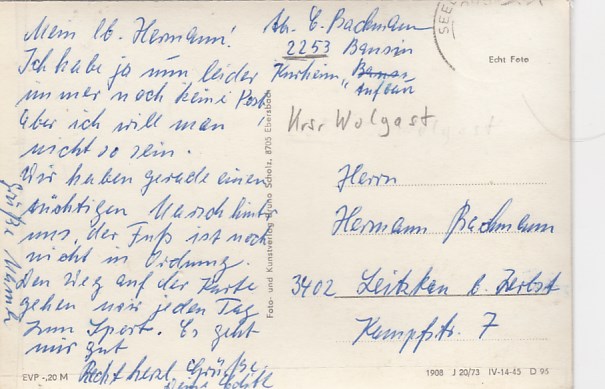 Mein lb. Hermann!
Ich habe ja nun leider
immer noch keine Post,
aber ich will man
nicht so sein.
Wir haben gerade einen
tüchtigen Marsch hinter
uns, der Fuß ist noch
nicht in Ordnung.
Den Weg auf der Karte
gehen wir jeden Tag
zum Sport. Es geht
mir gut
Recht herzl. Grüße,
Deine
Grüße
Abs. E. Bachmann
2253 Bansin
Kurheim "
Aufbau
Krs. Wolgast
SEE
Echt Foto
Herrn
Hermann Bachmann
3402 Leitzkau b. Zerbst
Kampfstr. 7
Foto- und Kunstverlag Bruno Scholz, 8705 Ebersbach
EVP -,20 M
1908 J 20/73 IV-14-45 D 95